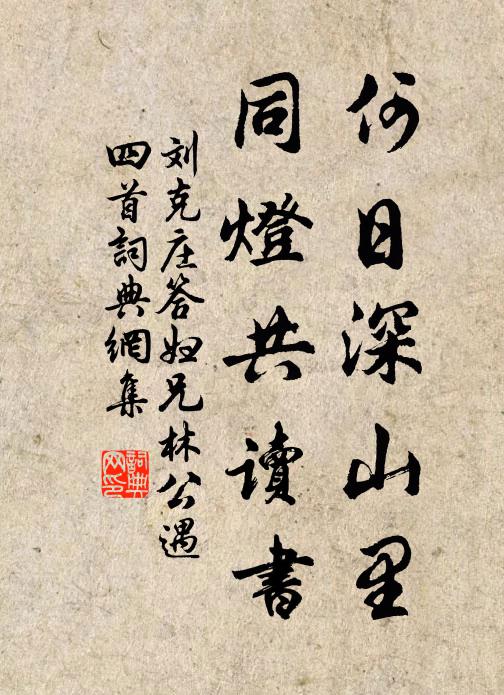 何日深山里
同燈共讀書
刘克庄答妇兄林公遇
四首詞典網集
詞典網印